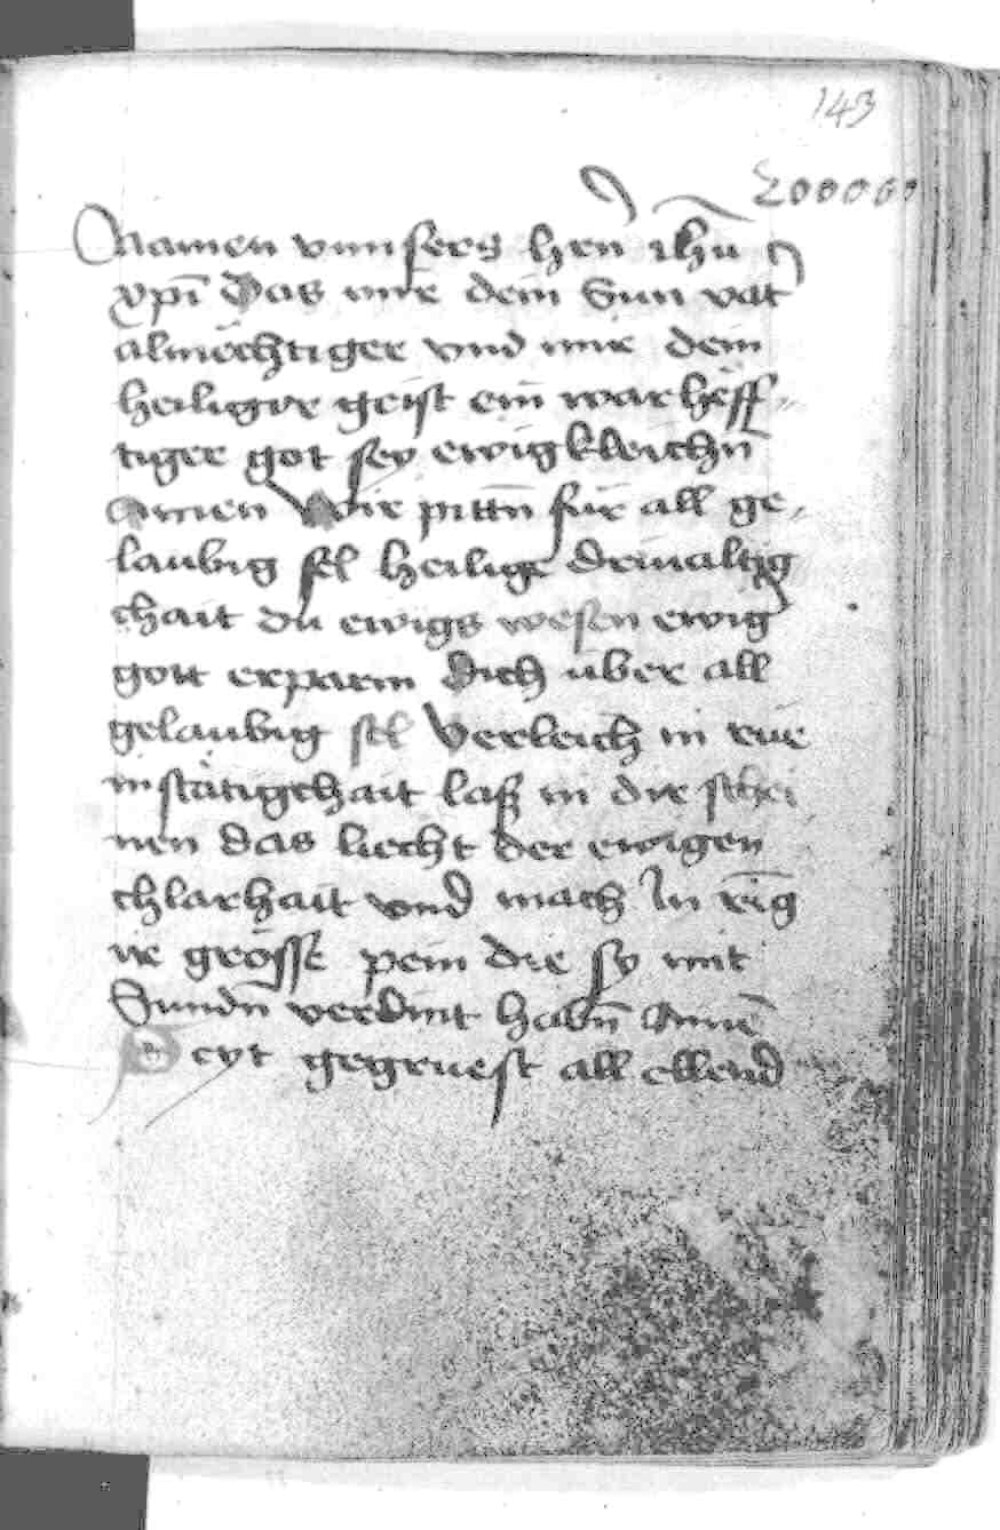 143
200000
Namen vnnsers hern ihũ
xpĩ Das mir dem Sun vat
almëchtiger vnd mir dem
heiliger geist ein warheff
tiger got sey ewigkleichñ
Amen Wir pittñ für all ge,
laubig sel heilige driualtig
chait du ewigs wesen ewig
gott erparm dich über all
gelaubig sel Verleich in rue
in stätigchait laß in die schei
nen das liecht der ewigen
chlarhait vnd mach In ring
ir grösse pein die sy mit
Sundñ verdint habñ Amẽ
Seyt gegruest all ellend